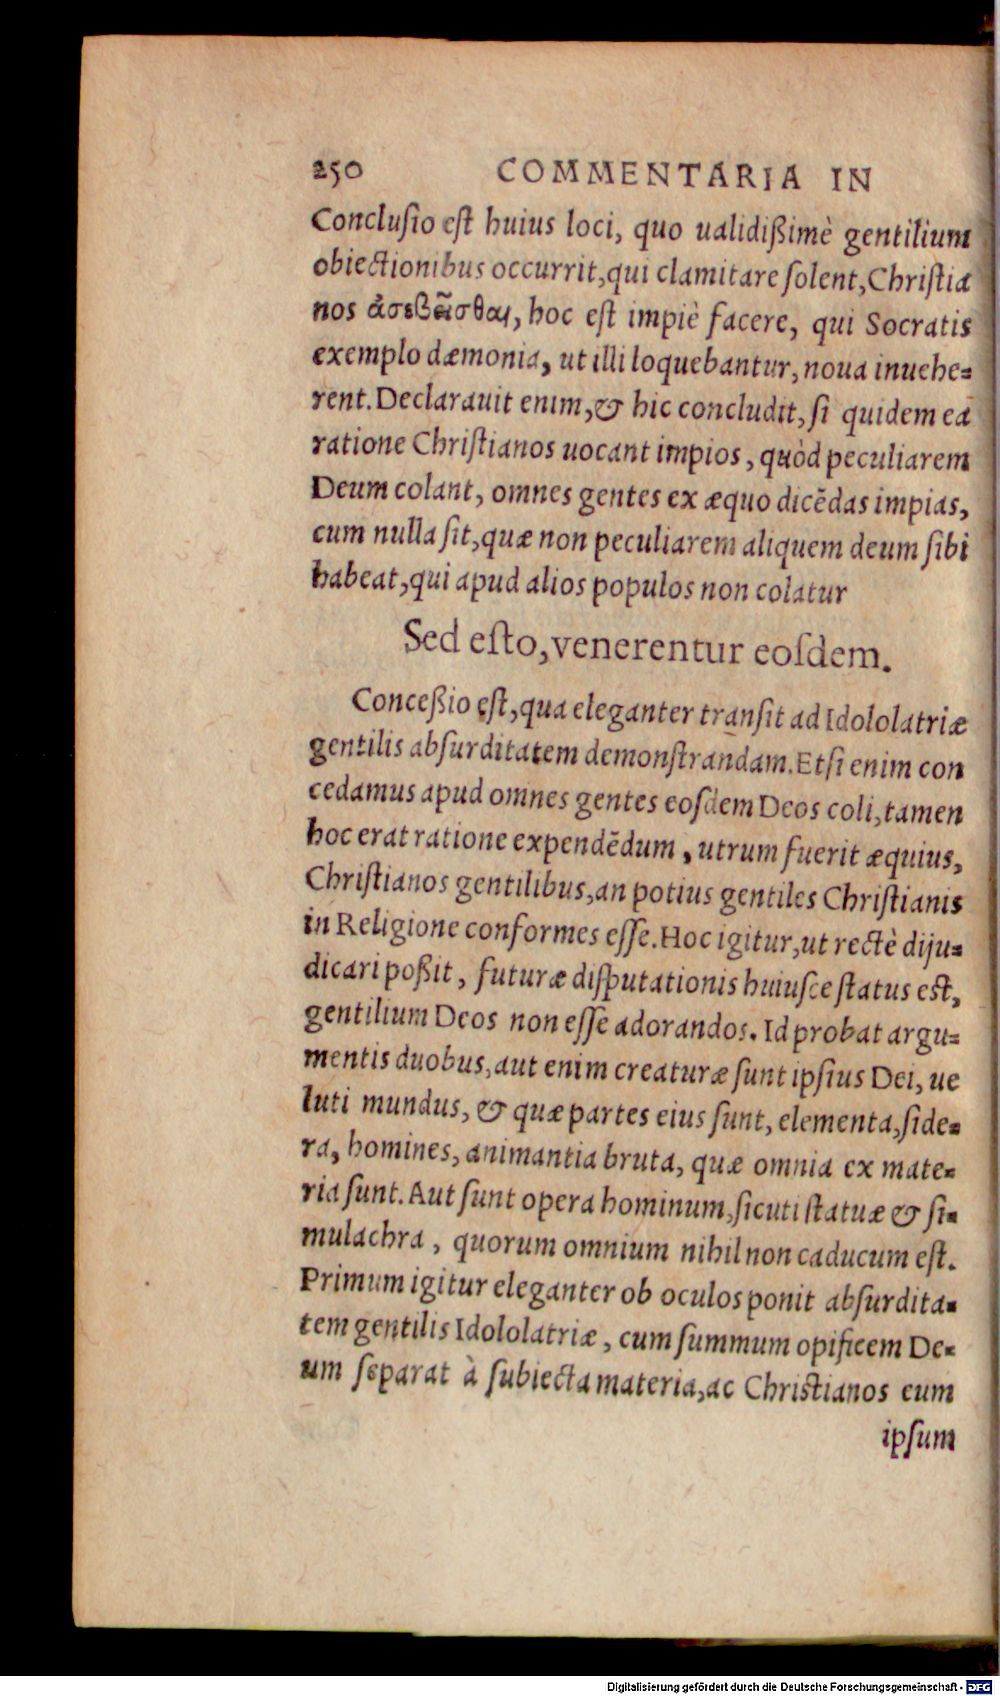 250 COMMENTARIA IN
Conclusio est huius loci, quo ualidißimè gentilium
obiectionibus occurrit, qui clamitare solent, Christia
nos ἀσεβεῖσθαι, hoc est impiè facere, qui Socratis
exemplo dæmonia, ut illi loquebantur, noua inuehe=
rent. Declarauit enim, & hic concludit, si quidem ea
ratione Christianos uocant impios, quòd peculiarem
Deum colant, omnes gentes ex æquo dicēdas impias,
cum nulla sit, quæ non peculiarem aliquem deum sibi
habeat, qui apud alios populos non colatur
Sed esto, venerentur eosdem.
Conceßio est, qua eleganter transit ad Idololatriæ
gentilis absurditatem demonstrandam. Etsi enim con
cedamus apud omnes gentes eosdem Deos coli, tamen
hoc erat ratione expendēdum, utrum fuerit æquius,
Christianos gentilibus, an potius gentiles Christianis
in Religione conformes esse. Hoc igitur, ut rectè diju=
dicari poßit, futuræ disputationis huiusce status est,
gentilium Deos non esse adorandos. Id probat argu=
mentis duobus, aut enim creaturæ sunt ipsius Dei, ue
luti mundus, & quæ partes eius sunt, elementa, side=
ra, homines, animantia bruta, quæ omnia ex mate=
ria sunt. Aut sunt opera hominum, sicuti statuæ & si=
mulachra, quorum omnium nihil non caducum est.
Primum igitur eleganter ob oculos ponit absurdita=
tem gentilis Idololatriæ, cum summum opificem De=
um separat à subiecta materia, ac Christianos eum
ipsum
Digitalisierung gefördert durch die Deutsche Forschungsgemeinschaft - DFG